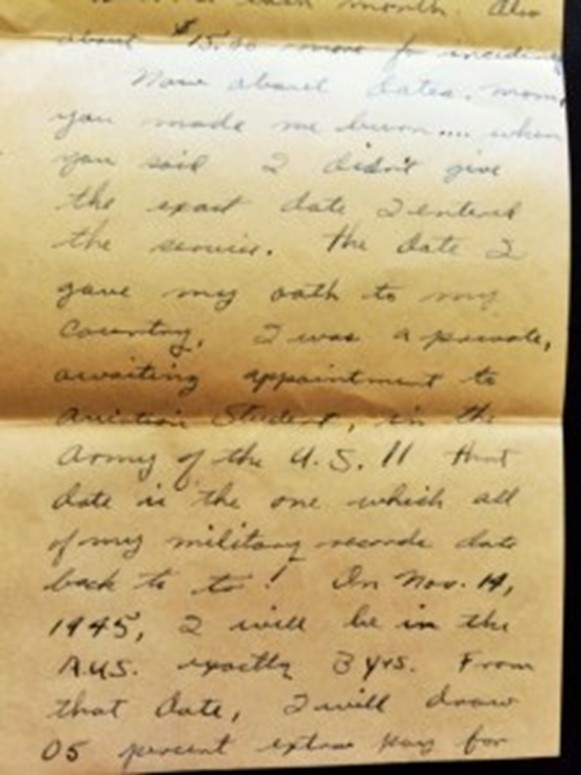 each month. Also
about $15.00 more for
Now about dates. Mom,
you made me burn.... when
you said I didn't give
the exact date I entered
the service. The date I
gave my oath to my
Country, I was a private,
awaiting appointment to
Aviation Student, in the
Army of the U.S. !! That
date is the one which all
of my military records date
back to to! On Nov. 14,
1945, I will be in the
A.U.S. exactly 3 yrs. From
that date, I will draw
05 percent extra pay for